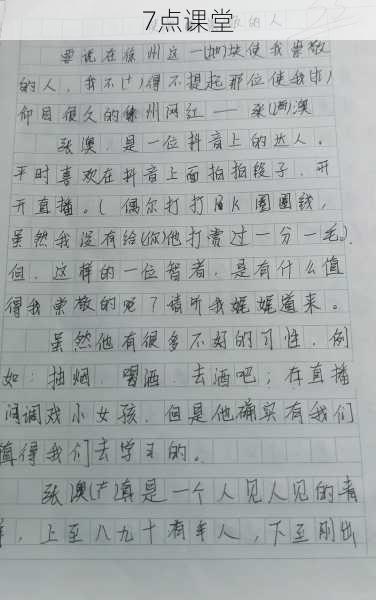 7点课堂
的人
要说在徐州这一(地)块使我崇敬
的人，我不(十)得不提起那位使我(中)
仰目很久的徐州网红——张(满)澳
张澳，是一位抖音上的达人。
平时喜欢在抖音上面拍拍段子，开
开直播。(偶尔打打PK圈圈钱，
虽然我没有给(你)他打赏过一分一毛)。
但，这样的一位智者，是有什么值
得我崇敬的呢？请听我娓娓道来。
虽然他有很多不好的习性，例
如：抽烟、喝酒、去酒吧；在直播
间调戏小女孩，但是他确实有我们
值得我们去学习的。
张澳(产)真是一个人见人见的青
年，上至八九十有年人，下至刚出